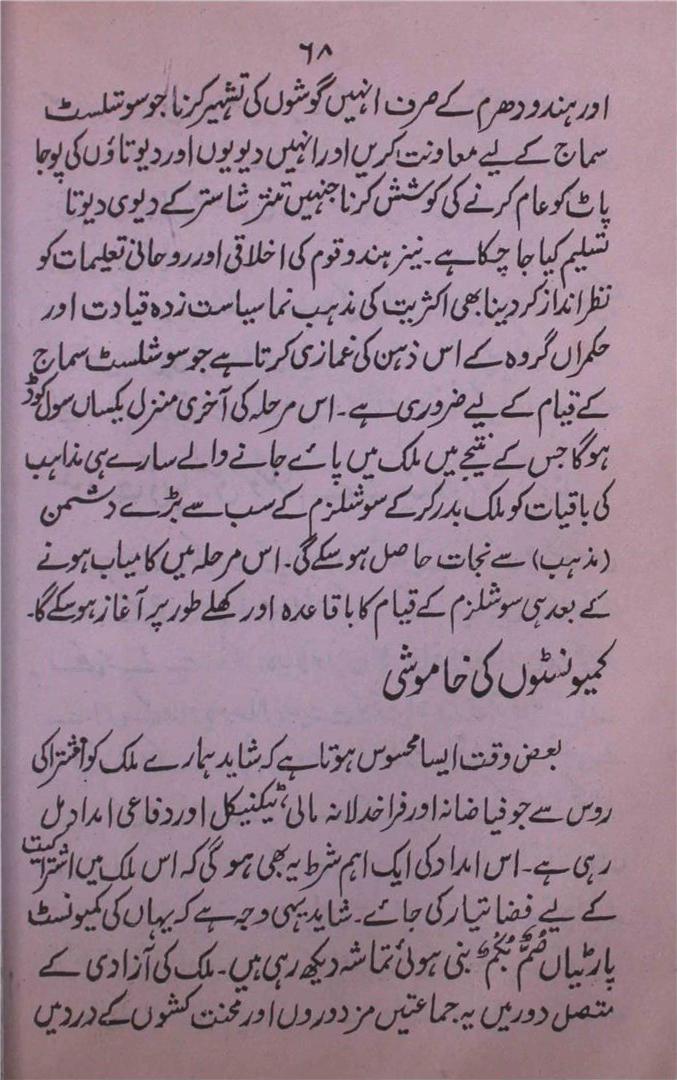 ۶۸
اور ہندو دھرم کے صرف انہیں گوشوں کی تشہیر کرنا جو سوشلسٹ
سماج کے لیے معاونت کریں اور انہیں دیویوں اور دیوتاؤں کی پوجا
پاٹ کو عام کرنے کی کوشش کرنا جنہیں تنتر شاستر کے دیوی دیوتا
تسلیم کیا جا چکا ہے۔ نیز ہندو قوم کی اخلاقی اور روحانی تعلیمات کو
نظر انداز کر دینا بھی اکثریت کی مذہب نما سیاست زدہ قیادت اور
حکمراں گروہ کے اس ذہن کی غمازی کرتا ہے جو سوشلسٹ سماج
کے قیام کے لیے ضروری ہے۔ اس مرحلہ کی آخری منزل یکساں سول کوڈ
ہوگا جس کے نتیجے میں ملک میں پائے جانے والے سارے ہی مذاہب
کی باقیات کو ملک بدر کرکے سوشلزم کے سب سے بڑے دشمن
(مذہب) سے نجات حاصل ہوسکے گی۔ اس مرحلہ میں کامیاب ہونے
کے بعد ہی سوشلزم کے قیام کا باقاعدہ اور کھلے طور پر آغاز ہوسکے گا۔
کمیونسٹوں کی خاموشی
بعض وقت ایسا محسوس ہوتا ہے کہ شاید ہمارے ملک کو اشتراکی
روس سے جو فیاضانہ اور فراخدلانہ مالی، ٹیکنیکل اور دفاعی امداد مل
رہی ہے۔ اس امداد کی ایک اہم شرط یہ بھی ہوگی کہ اس ملک میں اشتراکیت
کے لیے فضا تیار کی جائے۔ شاید یہی وجہ ہے کہ یہاں کی کمیونسٹ
پارٹیاں صُمٌّ بُکْمٌ بنی ہوئی تماشہ دیکھ رہی ہیں۔ ملک کی آزادی کے
متصل دور میں یہ جماعتیں مزدوروں اور محنت کشوں کے درد میں